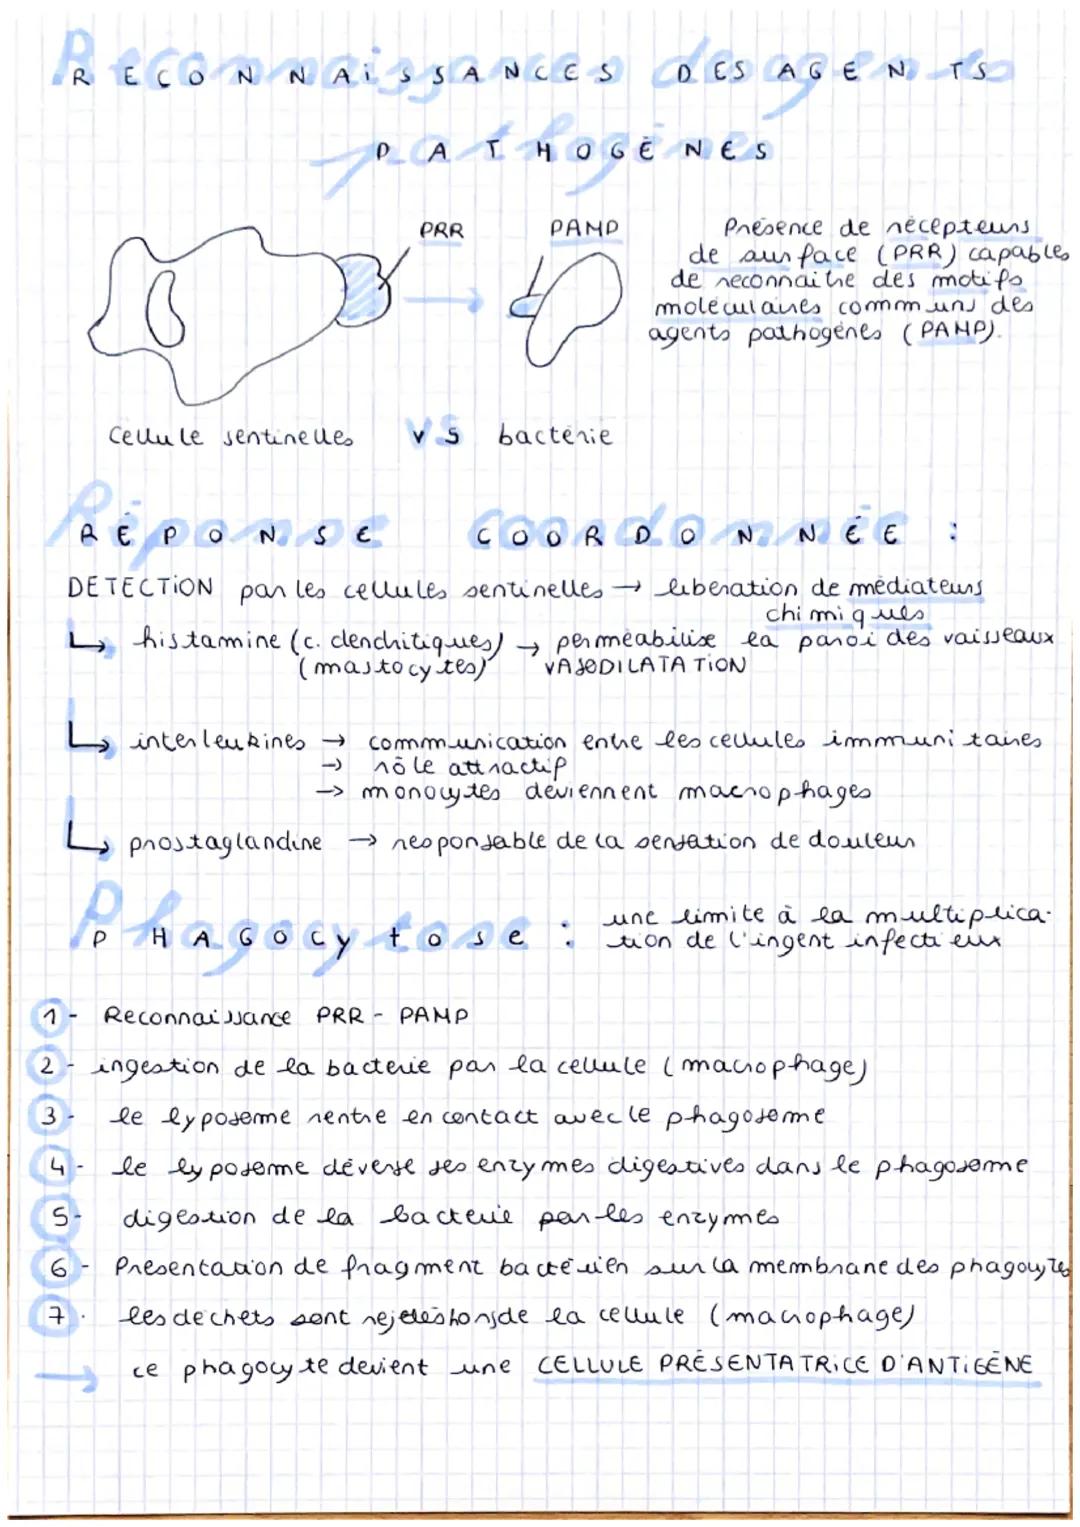 RECONNAISSANCES DES AGENTS
PATHOGÈNES
PRR
PAMP
Présence de récepteurs
de surface (PRR) capables
de reconnaitre des motifs
moléculaires communs des
agents pathogènes (PAMP).
Cellule sentinelles VS bactérie
RÉPONSE COORDONNÉE :
DETECTION par les cellules sentinelles → liberation de médiateurs
chimiques
↳ histamine (c. denchitiques) → perméabilise la paroi des vaisseaux
(mastocytes) VASODILATATION
↳ interleukines → communication entre les cellules immunitaires
→ rôle attractif
→ monocytes deviennent macrophages
↳ prostaglandine → responsable de la sensation de douleur
PHAGOCytose : une limite à la multiplica-
tion de l'ingent infectieux
1 - Reconnaissance PRR - PAMP
2 - ingestion de la bacterie par la cellule (macrophage)
3 - le lyposome rentre en contact avec le phagosome
4 - le lyposome déverse ses enzymes digestives dans le phagosome
5 - digestion de la bacterie par les enzymes
6 - Présentation de fragment bactérien sur la membrane des phagocytes
7 - les dechets sont rejetés hors de la cellule (macrophage)
→ ce phagocyte devient une CELLULE PRÉSENTATRICE D'ANTIGÈNE